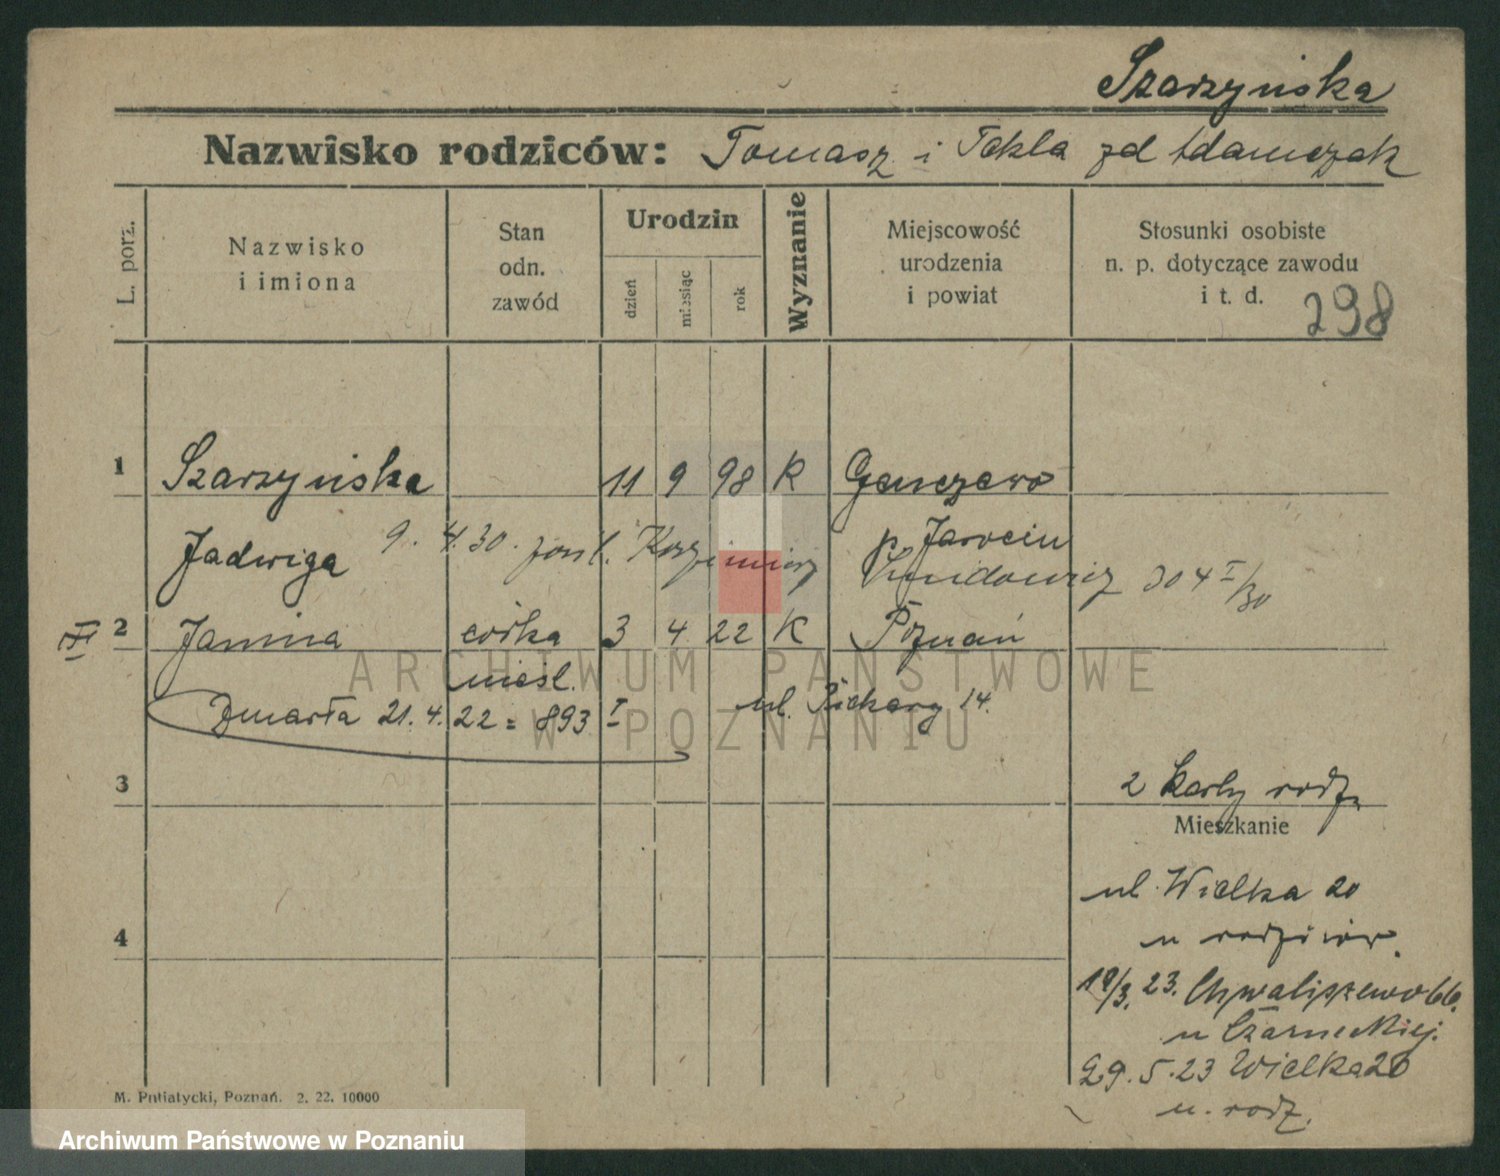 Szarzyńska
Nazwisko rodziców: Tomasz i Tekla zd Adamczak
L. porz.
Nazwisko
i imiona
Stan
odn.
zawód
Urodzin
dzień
miesiąc
rok
Wyznanie
Miejscowość
urodzenia
i powiat
Stosunki osobiste
n. p. dotyczące zawodu
i t. d.
298
1 Szarzyńska 11 9 98 K
Jadwiga 9. 4. 30. Kazimierz p. Jarocin
30
2 Janina córka 3 4 22 K Poznań
nieśl.
Zmarła 21.4.22 = 893 I ul. Piekary 14.
3
2 karty rodz.
Mieszkanie
ul. Wielka 20
u rodziców.
4
19/3. 23. Chwaliszewo 66.
u Czarneckiej.
29. 5. 23 Wielka 20
u. rodz.
M. Putiatycki, Poznań. 2. 22. 10000
ARCHIWUM PAŃSTWOWE
W POZNANIU
Archiwum Państwowe w Poznaniu